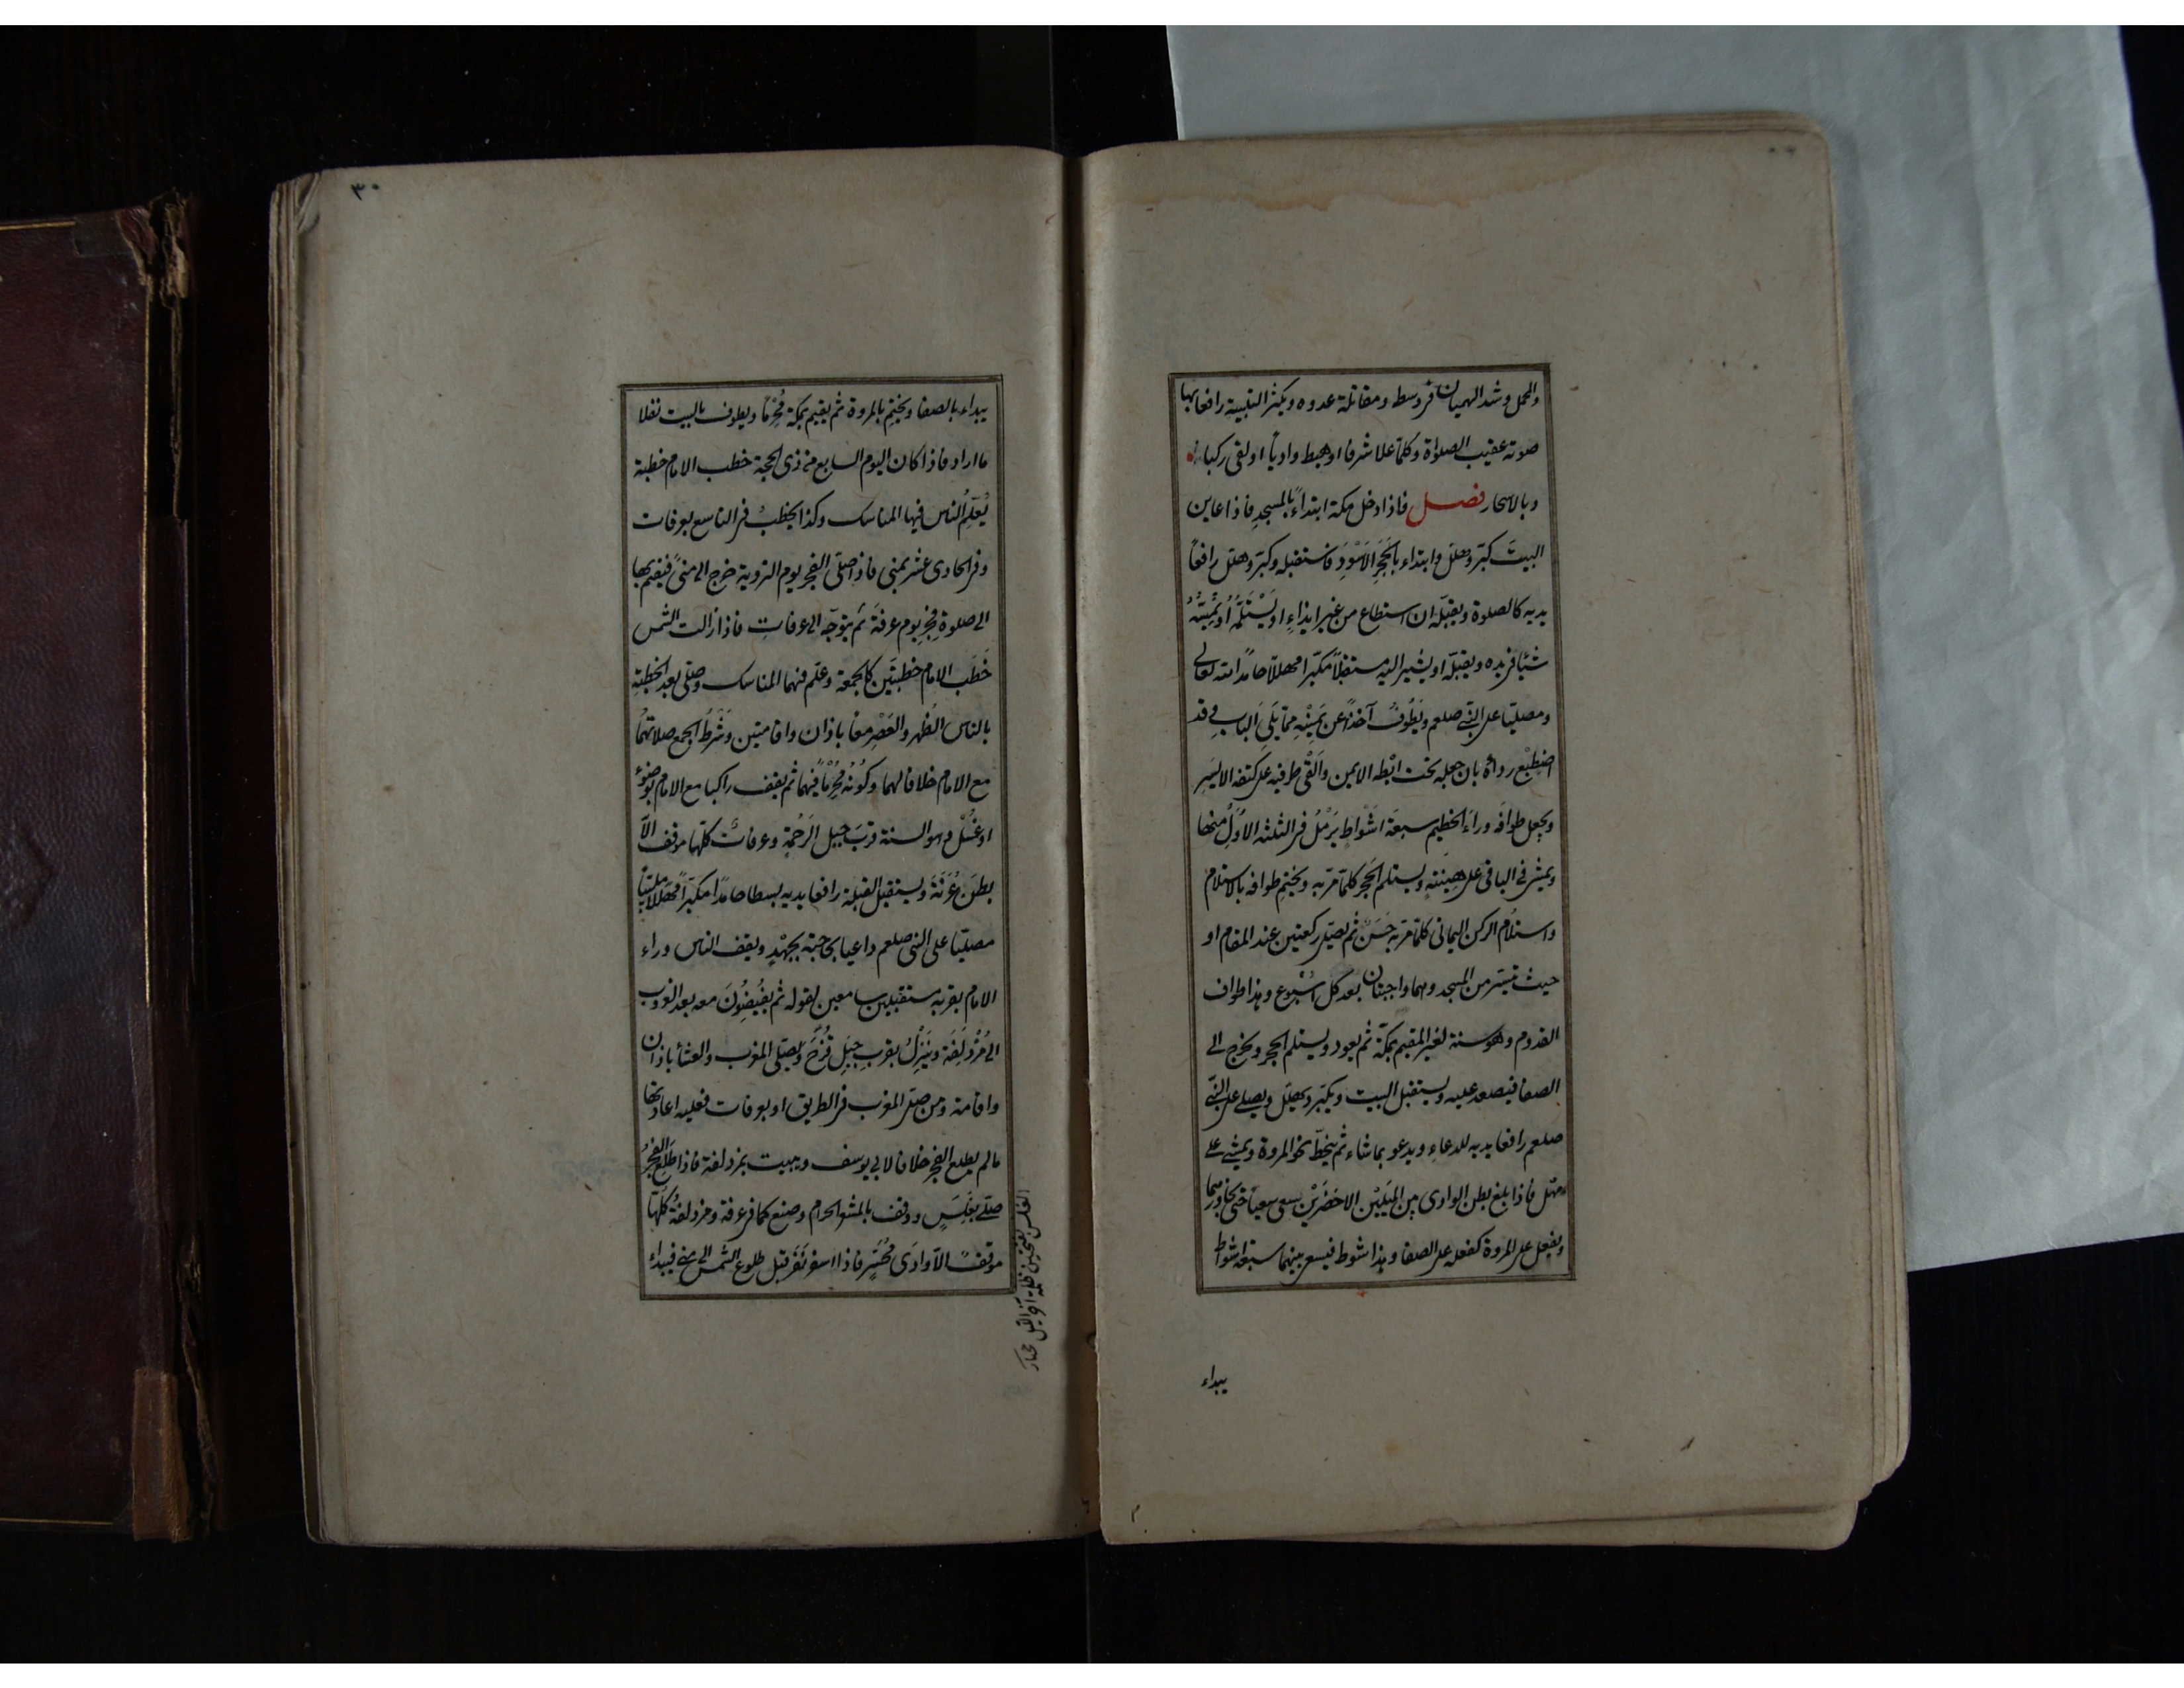 والمحمل وشد الهميان فى وسطه ومقاتلة عدوه ويكثر التلبية رافعا بها
صوته عقيب الصلوٰة وكلما علا شرفا او هبط واديا او لقى ركبا
وبالاسحار فصل فاذا دخل مكة ابتداء بالمسجدِ فاذا عاين
البيتَ كبّر وهلل وابتداء بالحَجَرِ الاَسْوَدِ فاستقبله وكبّر وهلل رافعاً
يديه كالصلوة ويقبّله ان استطاع من غير ايذاءٍ او يَسْتَلِمُهُ او يُمِسُّهُ
شيئا فى يده ويقبّله او يشير اليه مستقبلاً مكبّرا مهللاً حامدًا لله تعالى
ومصليا على النبى صلعم ويَطُوفُ آخذًا عن يَمِيْنِهِ ممّا يَلِى الباب وقد
اضطبع رداءَه بان جعله تحت ابْطه الايمن وَالْقَى طرفيه على كتفه الايسر
ويجعل طوافَه وراءَ الحطيم سبعَة اشْواطٍ يَرْمُلُ فى الثلثه الاُوَلِ منها
ويمشى فى الباقى على هِينَتِهِ ويستلم الحَجَر كلما مرّ به ويختِم طوافه بالاستلام
واستلامُ الركن اليمانى كلما مرّ به حَسَنٌ ثم يصلّى ركعتين عند المقام او
حيث تيسّر من المسجد وهما واجبتان بعد كل اُسْبُوع وهذا طواف
القدوم وهو سنة لغير المقيم بمكّة ثم يعود ويستلم الحجر ويخرج الى
الصفا فيصعد عليه ويستقبل البيت ويكبّر ويهلل ويصلى على النبى
صلعم رافعا يديه للدعاءِ ويدعو بما شاء ثم ينحطّ نحو المروة ويمشى على
مهْل فاذا بلغ بطن الوادى بين المِيْلَيْن الاخضَرَيْن سعى سعيا حتى يجاوزهما
ويفعل على المروة كفعله على الصفا وهذا شوط فيسعى بينهما سبعة اشواط
يبداء
٣٠
يبداء بالصفا ويختِم بالمروة ثم يقيم بمكّة مُحْرِمًا ويطوف بالبيت نفلا
ما اراد فاذا كان اليوم السابع من ذى الحجة خطب الامام خطبة
يُعَلِّمُ الناس فيها المناسك وكذا يخطبُ فى التاسع بعرفات
وفى الحادى عشر بمنى فاذا صلّى الفجر يوم التروية خرج الى منىً فيقيم بها
الى صلوةِ فجرِ يوم عرفةَ ثم يتوجّه الى عرفاتٍ فاذا زالت الشمس
خَطَب الامام خطبتَين كالجمعة وعلّم فيهما المناسك وصلّى بعد الخطبة
بالناس الظُهر والعَصْر معًا باذان واقامتين وشَرْطُ الجمع صلاتهما
مع الامام خلافا لهما وكَوْنُه مُحْرِمًا فيهما ثم يقف راكبا مع الامام بوضوء
اوغُسْلٍ وهو السنة قربَ جبل الرَحْمَةِ وعرفاتٌ كلها موقف الّا
بطنَ عُرَنَةَ ويستقبل القبلة رافعا يديه بسطا حامدًا مكبّراً مهللاً ملبّيا
مصلّيا على النبى صلعم داعيا بحاجته بجهْدٍ ويقف الناس وراء
الامام بقربه مستقبلين سامعين لقوله ثم يفيضُونَ معه بعد الغروب
الى مُزْدَلِفَةَ ويَنْزِلُ بقربِ جبَل قُزَحَ ويصلّى المغرب والعشاَ باذان
واقامة ومن صلّى المغرب فى الطريق او بعرفات فعليه اعادتها
مالم يطلع الفجر خلافا لابى يوسف ويبيت بمزدلفة فاذا طلع الفجرُ
صلّى بغَلَسٍ ووقف بالمشعر الحرام وصنع كما فى عرفة ومزدلفةُ كلُّها
موقفٌ الّا وادَى مُحَسِّر فاذا اسفر نَفَر قبل طلوع الشمس الى منى فيبداء
الغلس بفتحتين ظلمة آخر الليل مختار